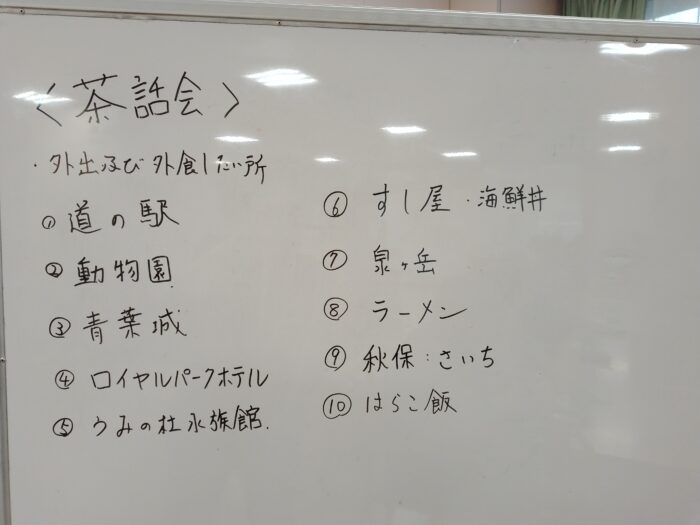 〈茶話会〉
・外出及び外食したい所
① 道の駅
② 動物園
③ 青葉城
④ ロイヤルパークホテル
⑤ うみの杜水族館.
⑥ すし屋・海鮮丼
⑦ 泉ヶ岳
⑧ ラーメン
⑨ 秋保:さいち
⑩ はらこ飯